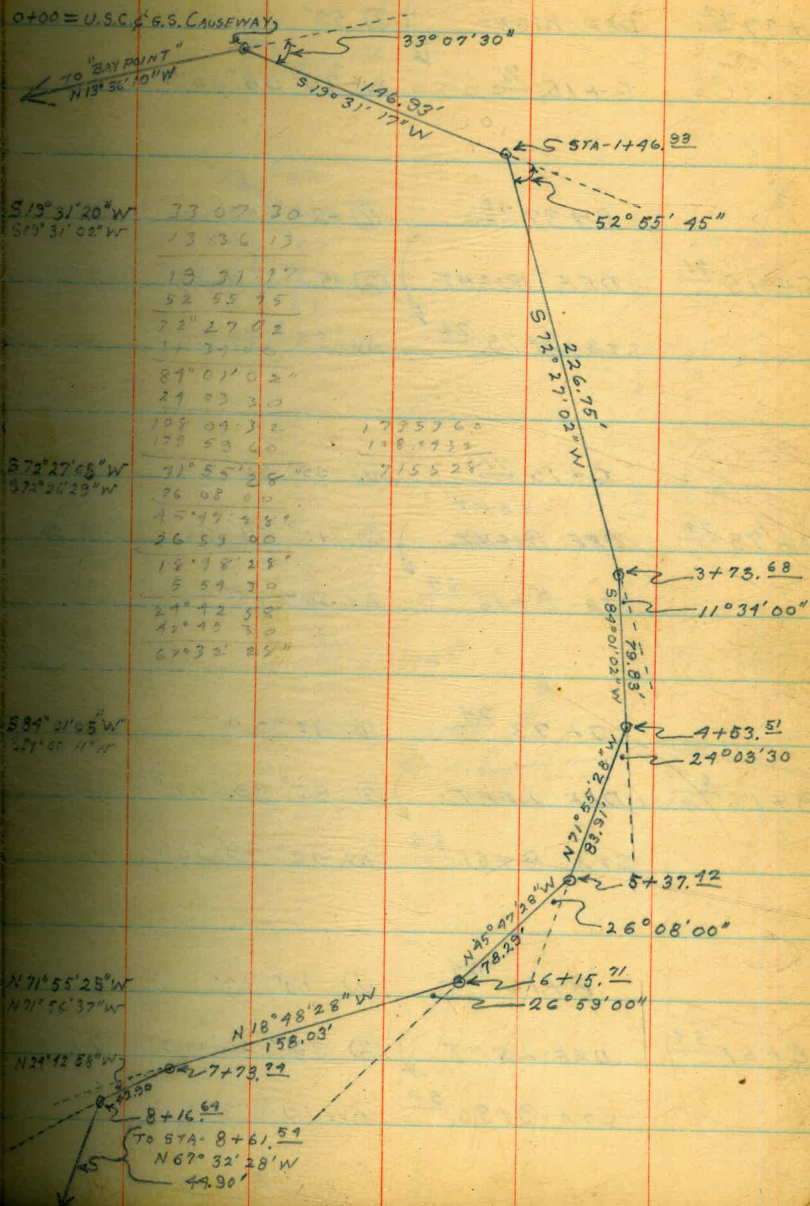 0+00 = U.S.C. & G.S. CAUSEWAY
33° 07' 30"
TO "BAY POINT"
N 13° 36' 10" W
146.93'
S 19° 31' 17" W
STA-1+46.93
52° 55' 45"
S 19° 31' 20" W
S 19° 31' 02" W
33 07 30
13 36 13
19 31 17
52 55 45
72° 27 02
11 34 00
84° 01' 02"
24 03 30
108 04 32
179 59 60
71° 55' 28"
26 08 00
45° 47' 28"
26 59 00
18° 48' 28"
5 54 30
24° 42 58"
42° 49 30
67° 32' 28"
1795960
1080432
715528
226.75'
S 72° 27' 02" W
S 72° 27' 05" W
S 72° 26' 29" W
3+73.68
11° 34' 00"
79.83'
S 84° 01' 02" W
S 84° 01' 05" W
4+53.51
24° 03' 30
N 71° 55' 28" W
83.91'
5+37.42
26° 08' 00"
N 45° 47' 28" W
78.29'
6+15.71
26° 59' 00"
N 71° 55' 25" W
N 71° 56' 37" W
N 18° 48' 28" W
158.03'
N 24° 42' 58" W
7+73.74
42.90
8+16.64
TO STA- 8+61.54
N 67° 32' 28" W
44.90'